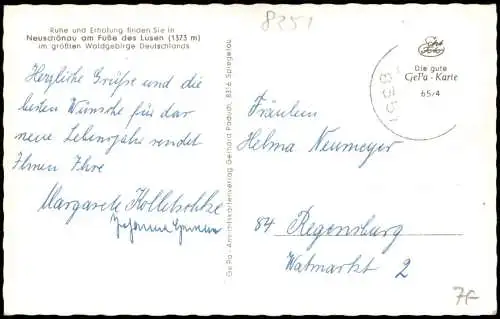 8351
Ruhe und Erholung finden Sie in
Neuschönau am Fuße des Lusen (1373 m)
im größten Waldgebirge Deutschlands
Herzliche Grüße und die
besten Wünsche für das
neue Lebensjahr sendet
Ihnen Ihre
Margarete Kolletschke
GePa-Ansichtskartenverlag Gerhard Paduch, 8316 Spiegelau
Die gute
GePa-Karte
65/4
8351
Fräulein
Helma Neumeyer
84 Regensburg
Watmarkt 2
7,-